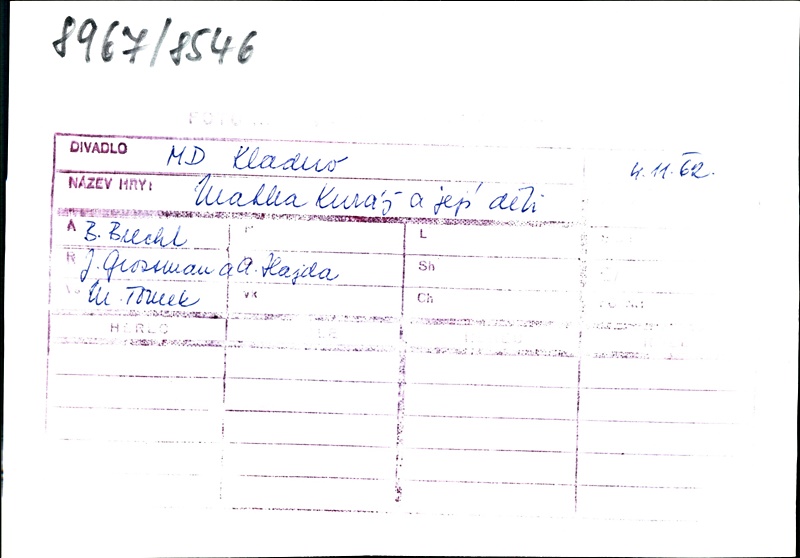 8967/8546
DIVADLO MD Kladno 4.11.62.
NÁZEV HRY: Matka Kuráž a její děti
A B. Brecht L
R J. Grossman a A. Hajda Sh
M. Tomek VK Ch
HEREC